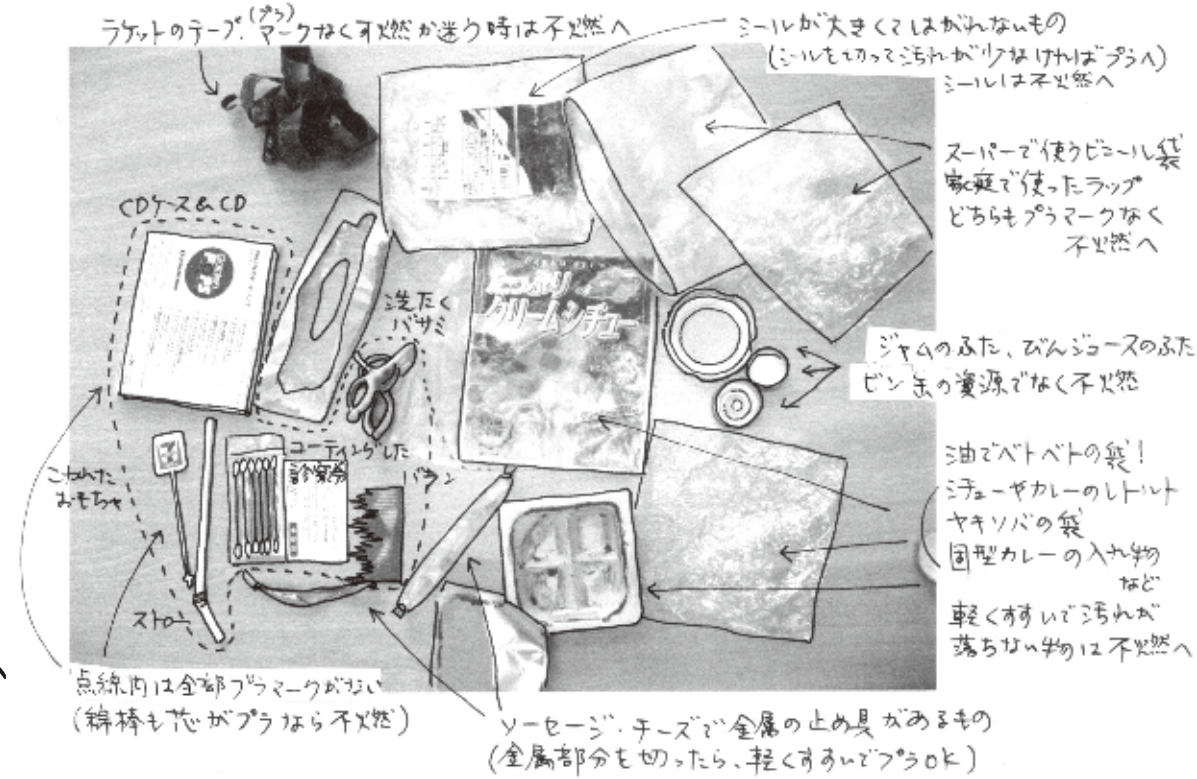 ラケットのテープ. マークなく可燃か迷う時は不燃へ
(プラ)
シールが大きくてはがれないもの
(シールを切って汚れが少なければプラへ)
シールは不燃へ
スーパーで使うビニール袋
家庭で使ったラップ
どちらもプラマークなく
不燃へ
CDケース&CD
洗たく
バサミ
クリームシチュー
ジャムのふた、びんジュースのふた
ビン缶の資源でなく不燃
コーティングした
診察券
バラン
こわれた
おもちゃ
油でベトベトの袋!
シチューやカレーのレトルト
ヤキソバの袋
固型カレーの入れ物
など
軽くすすいで汚れが
落ちない物は不燃へ
ストロー
点線内は全部プラマークがない
(綿棒も芯がプラなら不燃)
ソーセージ・チーズで金属の止め具があるもの
(金属部分を切ったら、軽くすすいでプラOK)